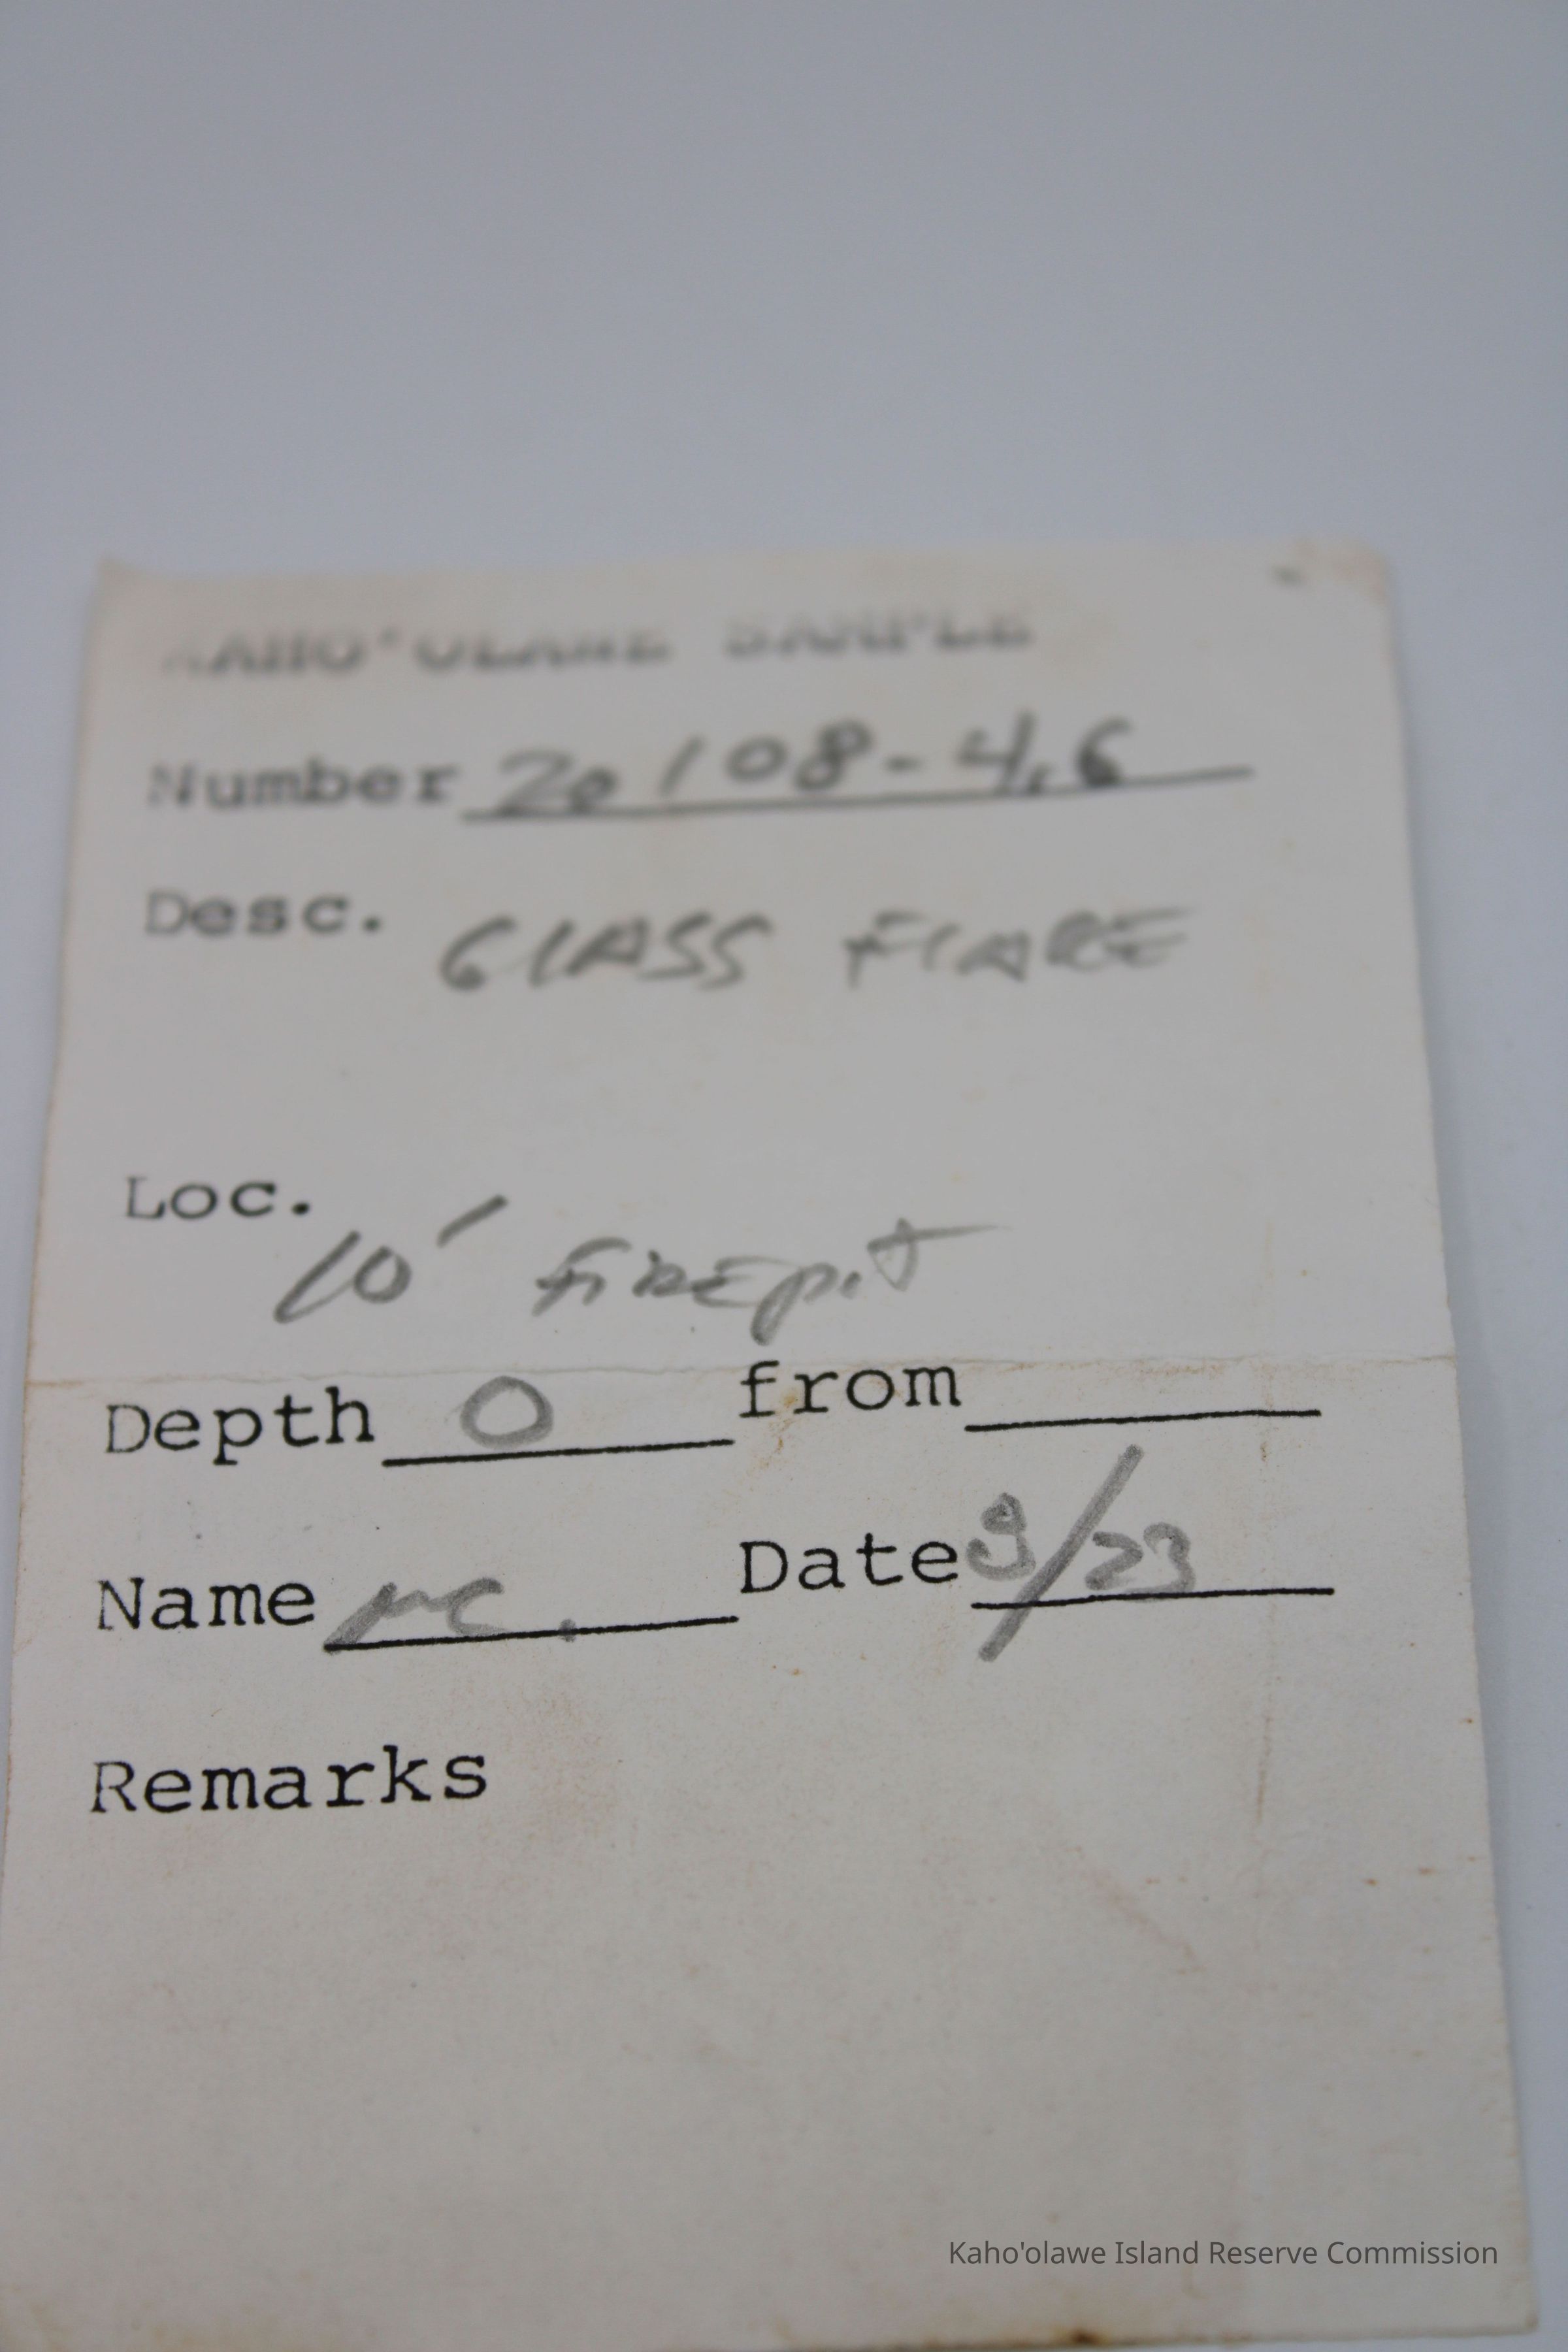 KAHO'OLAWE SAMPLE
Number 20108-4,6
Desc. GLASS FLAKE
Loc. 10' Firepit
Depth 0 from
Name MC. Date 9/23
Remarks
Kaho'olawe Island Reserve Commission